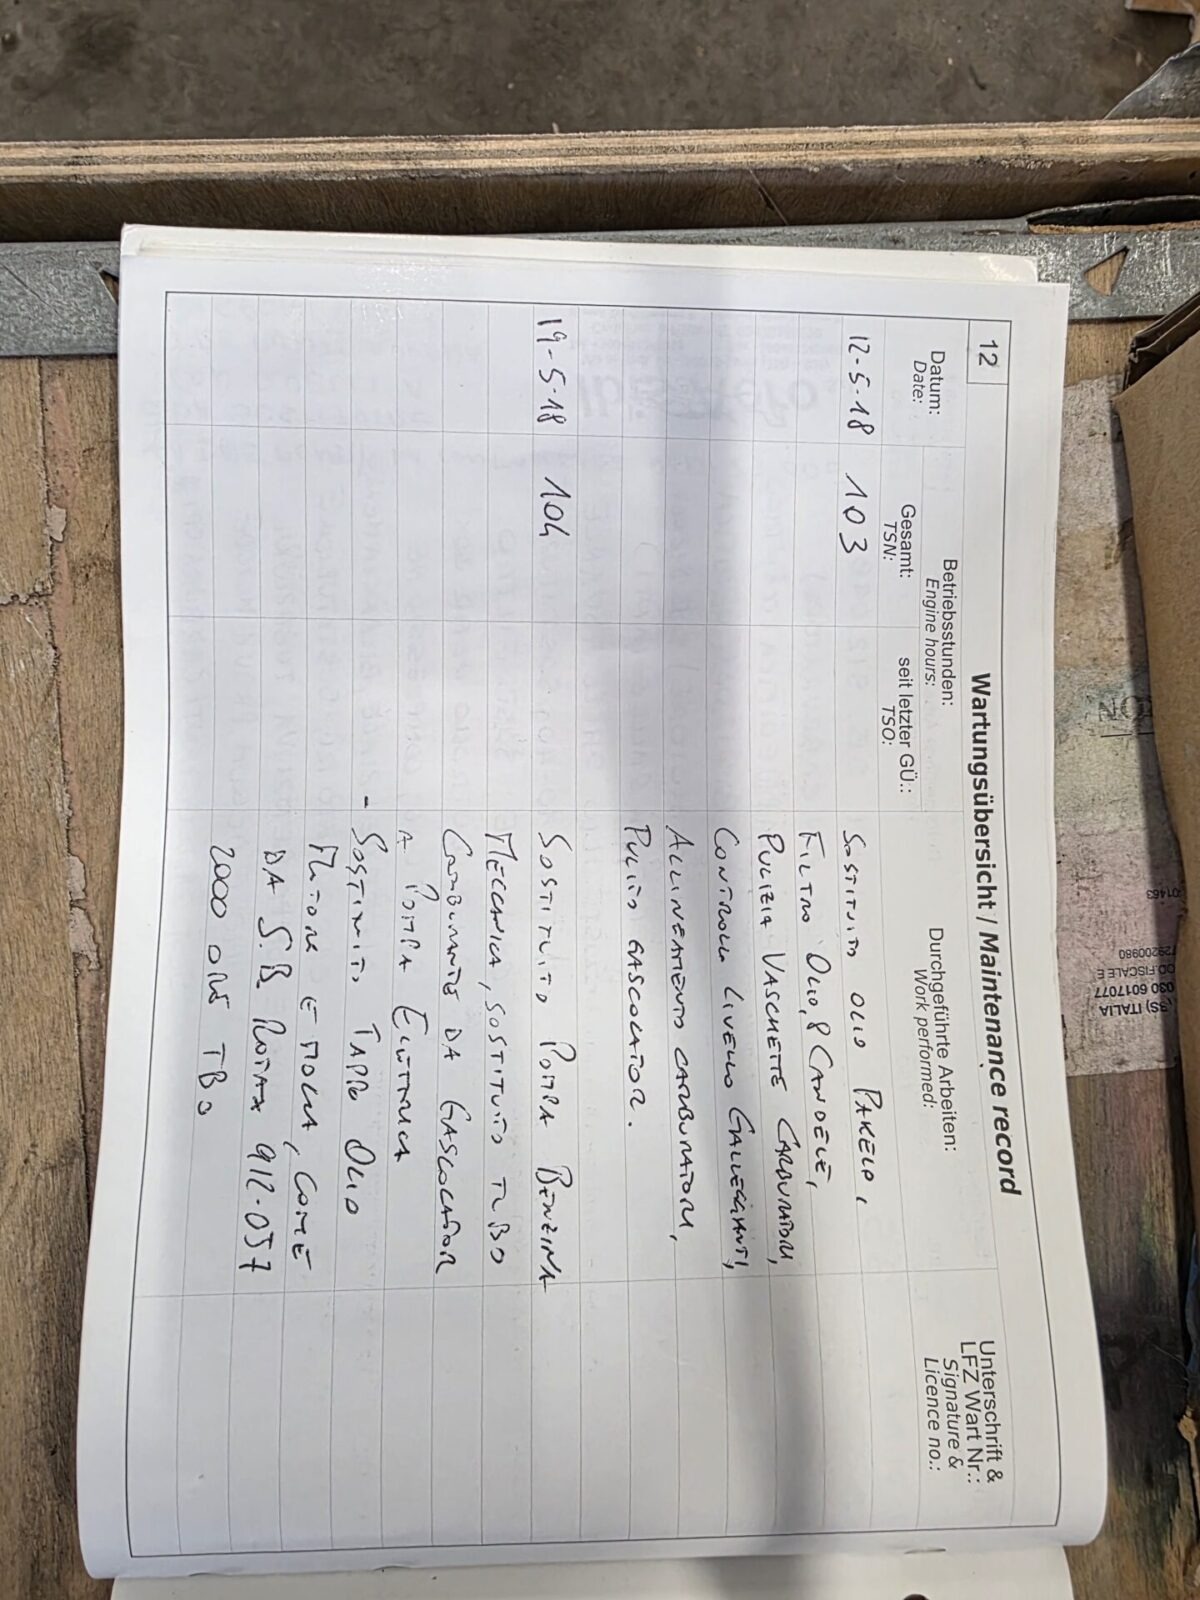 12
Wartungsübersicht / Maintenance record
Datum:
Date:
Betriebsstunden:
Engine hours:
Gesamt:
TSN:
seit letzter GÜ.:
TSO:
Durchgeführte Arbeiten:
Work performed:
Unterschrift &
LFZ Wart Nr.:
Signature &
Licence no.:
12-5-18 103 SOSTITUITO OLIO PAKELO,
FILTRO OLIO, 8 CANDELE,
PULIZIA VASCHETTE CARBURATORI,
CONTROLLO LIVELLO GALLEGGIANTI,
ALLINEAMENTO CARBURATORI,
PULITO GASCOLATOR.
19-5-18 104 SOSTITUITO POMPA BENZINA
MECCANICA, SOSTITUITO TUBO
CARBURANTE DA GASCOLATOR
A POMPA ELETTRICA
- SOSTITUITO TAPPO OLIO
MOTORE E MOLLA, COME
DA S.B. ROTAX 912-057
2000 ORE TBO
(BS) ITALIA
030 6017077
OD.FISCALE E
729200980
01463